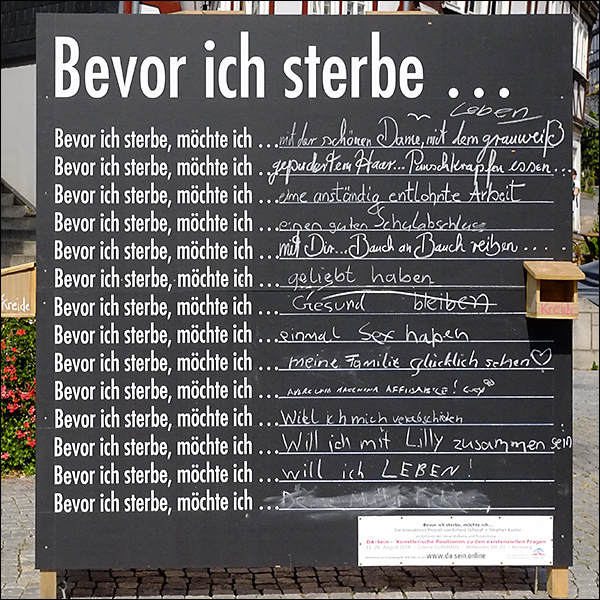 Bevor ich sterbe ...
Leben
Bevor ich sterbe, möchte ich ... mit der schönen Dame, mit dem grauweiß
Bevor ich sterbe, möchte ich ... gepudertem Haar... Punschkrapfen essen...
Bevor ich sterbe, möchte ich ... eine anständig entlohnte Arbeit
Bevor ich sterbe, möchte ich ... einen guten Schulabschluss
Bevor ich sterbe, möchte ich ... mit Dir... Bauch an Bauch reiben....
Bevor ich sterbe, möchte ich ... geliebt haben
Bevor ich sterbe, möchte ich ... Gesund bleiben
Bevor ich sterbe, möchte ich ... einmal Sex haben
Bevor ich sterbe, möchte ich ... meine Familie glücklich sehen♡
Bevor ich sterbe, möchte ich ... MACCHINA AFFIDABILE!
Bevor ich sterbe, möchte ich ... ich mich verabschieden
Bevor ich sterbe, möchte ich ... Will ich mit Lilly zusammen sein
Bevor ich sterbe, möchte ich ... will ich LEBEN!
Bevor ich sterbe, möchte ich ...
Kreide
Kreide
Bevor ich sterbe, möchte ich...
DA-Sein - Künstlerische Positionen zu den existenziellen Fragen
www.da-sein.online